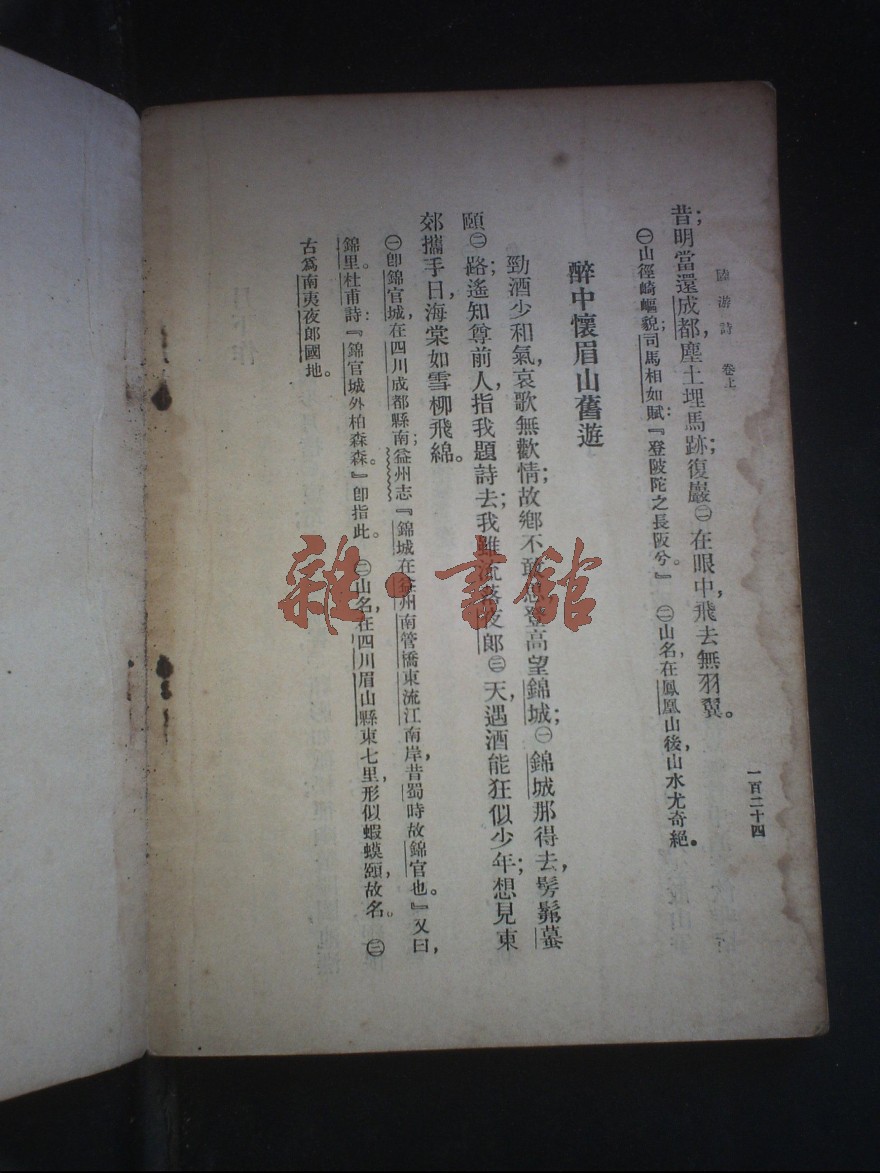 陸游詩 卷上
一百二十四
昔；明當還成都，塵土埋馬跡；復巖㊁在眼中，飛去無羽翼。
㊀山徑崎嶇貌；司馬相如賦：『登陂陀之長阪兮。』 ㊁山名，在鳳凰山後，山水尤奇絕。
醉中懷眉山舊遊
勁酒少和氣，哀歌無歡情；故鄉不敢思，登高望錦城；㊀錦城那得去，髣髴蟇
頤㊁路；遙知尊前人，指我題詩去；我雖流落夜郎㊂天，遇酒能狂似少年；想見東
郊攜手日，海棠如雪柳飛綿。
㊀卽錦官城，在四川成都縣南；益州志『錦城在益州南管橋東流江南岸，昔蜀時故錦官也。』又曰，
錦里。杜甫詩：『錦官城外柏森森。』卽指此。 ㊁山名，在四川眉山縣東七里，形似蝦蟆頤，故名。 ㊂
古爲南夷夜郎國地。
雜·書館